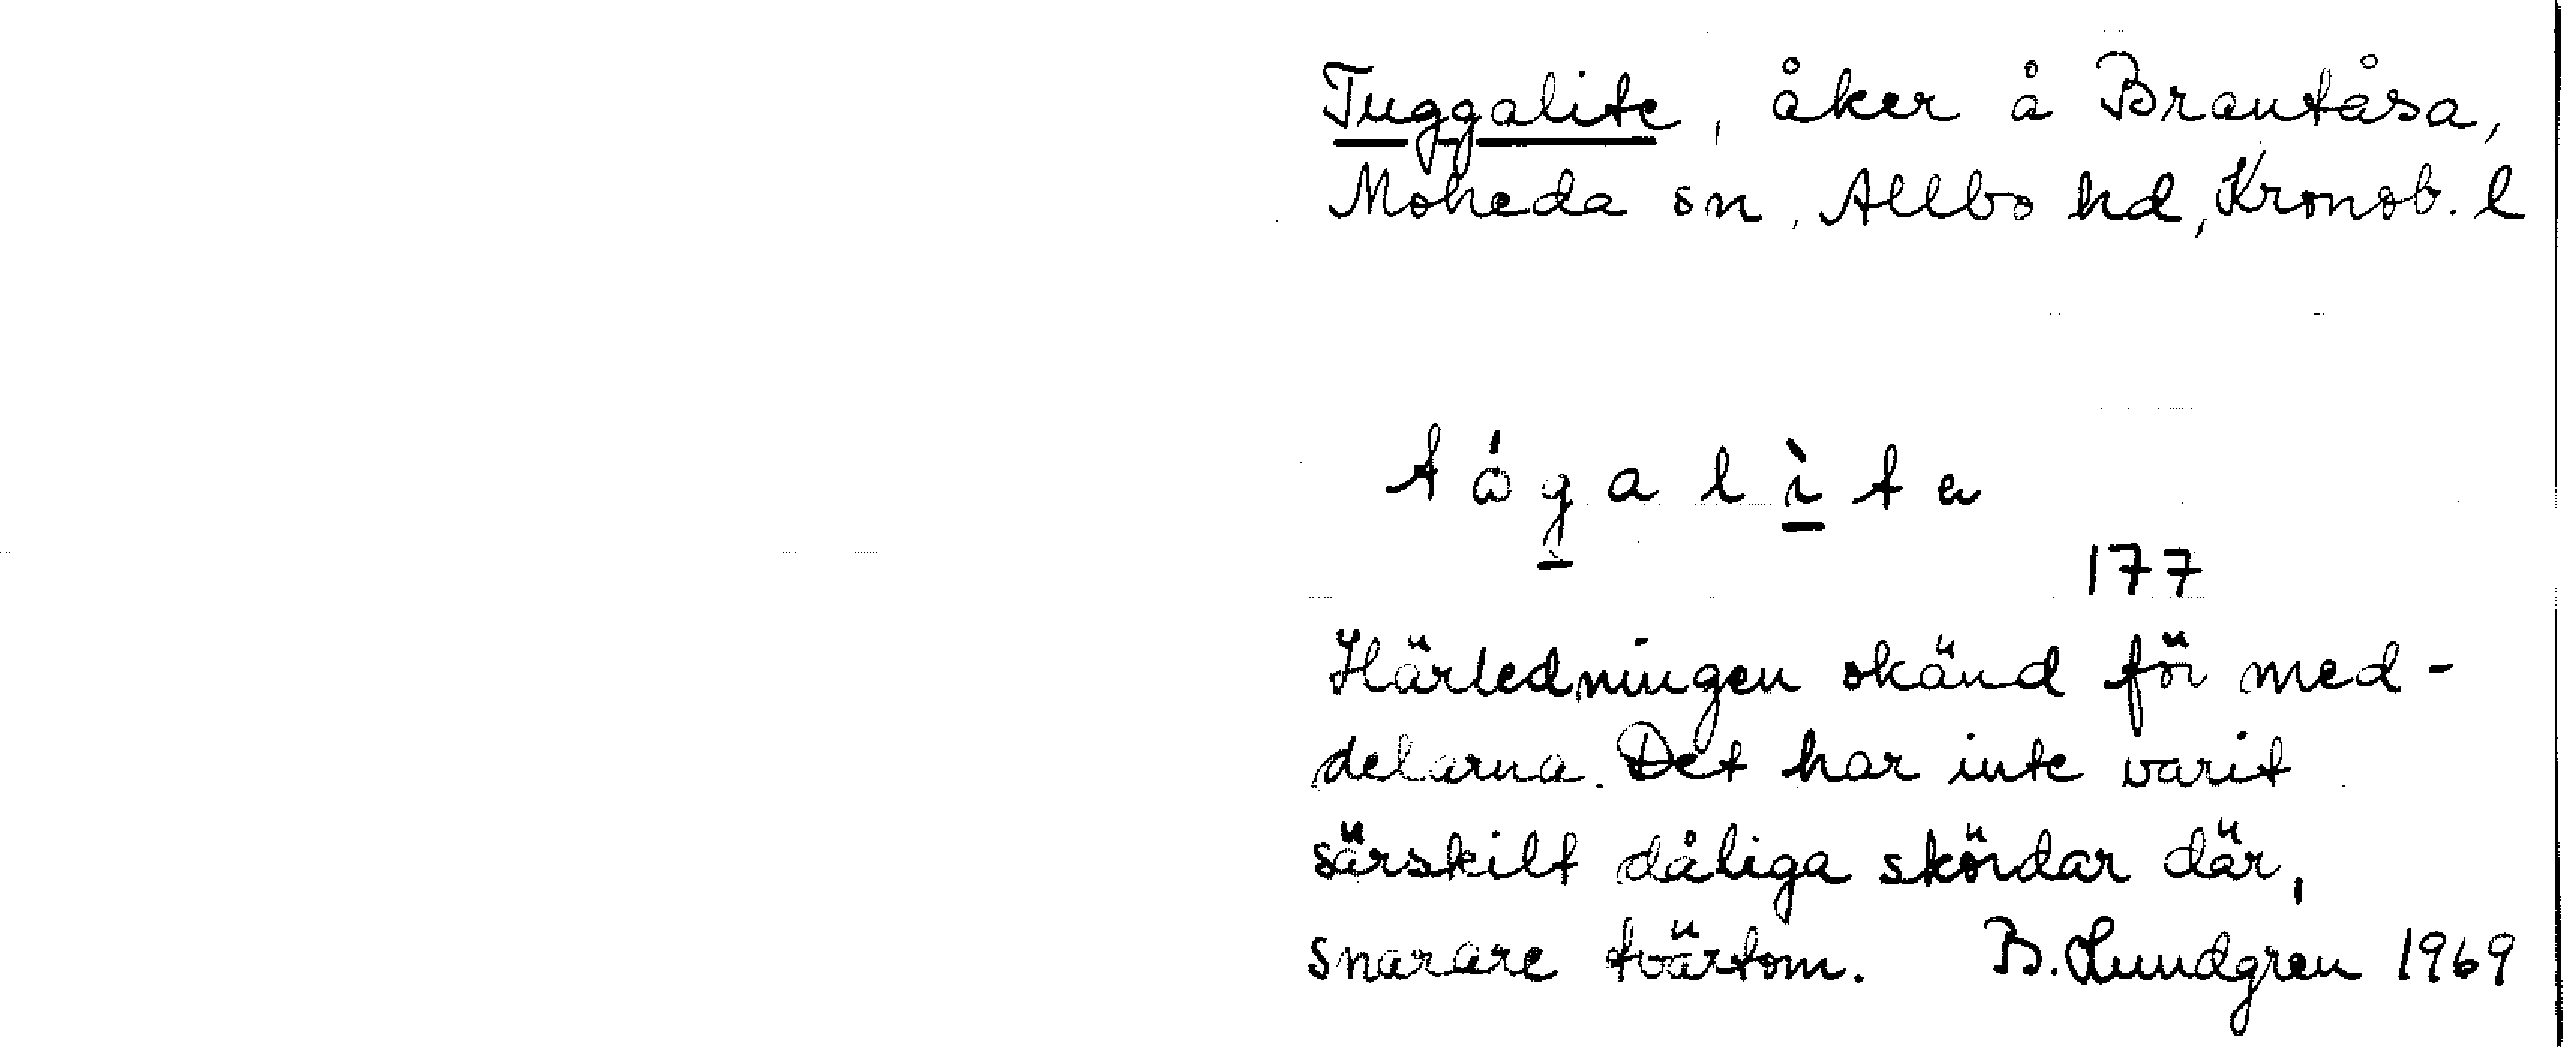 Tuggalite, åker å Brantåsa,
Moheda sn, Allbo hd, Kronob. l
177
Härledningen okänd för med-
delarna. Det har inte varit
särskilt dåliga skördar där,
snarare tvärtom. B. Lundgren 1969